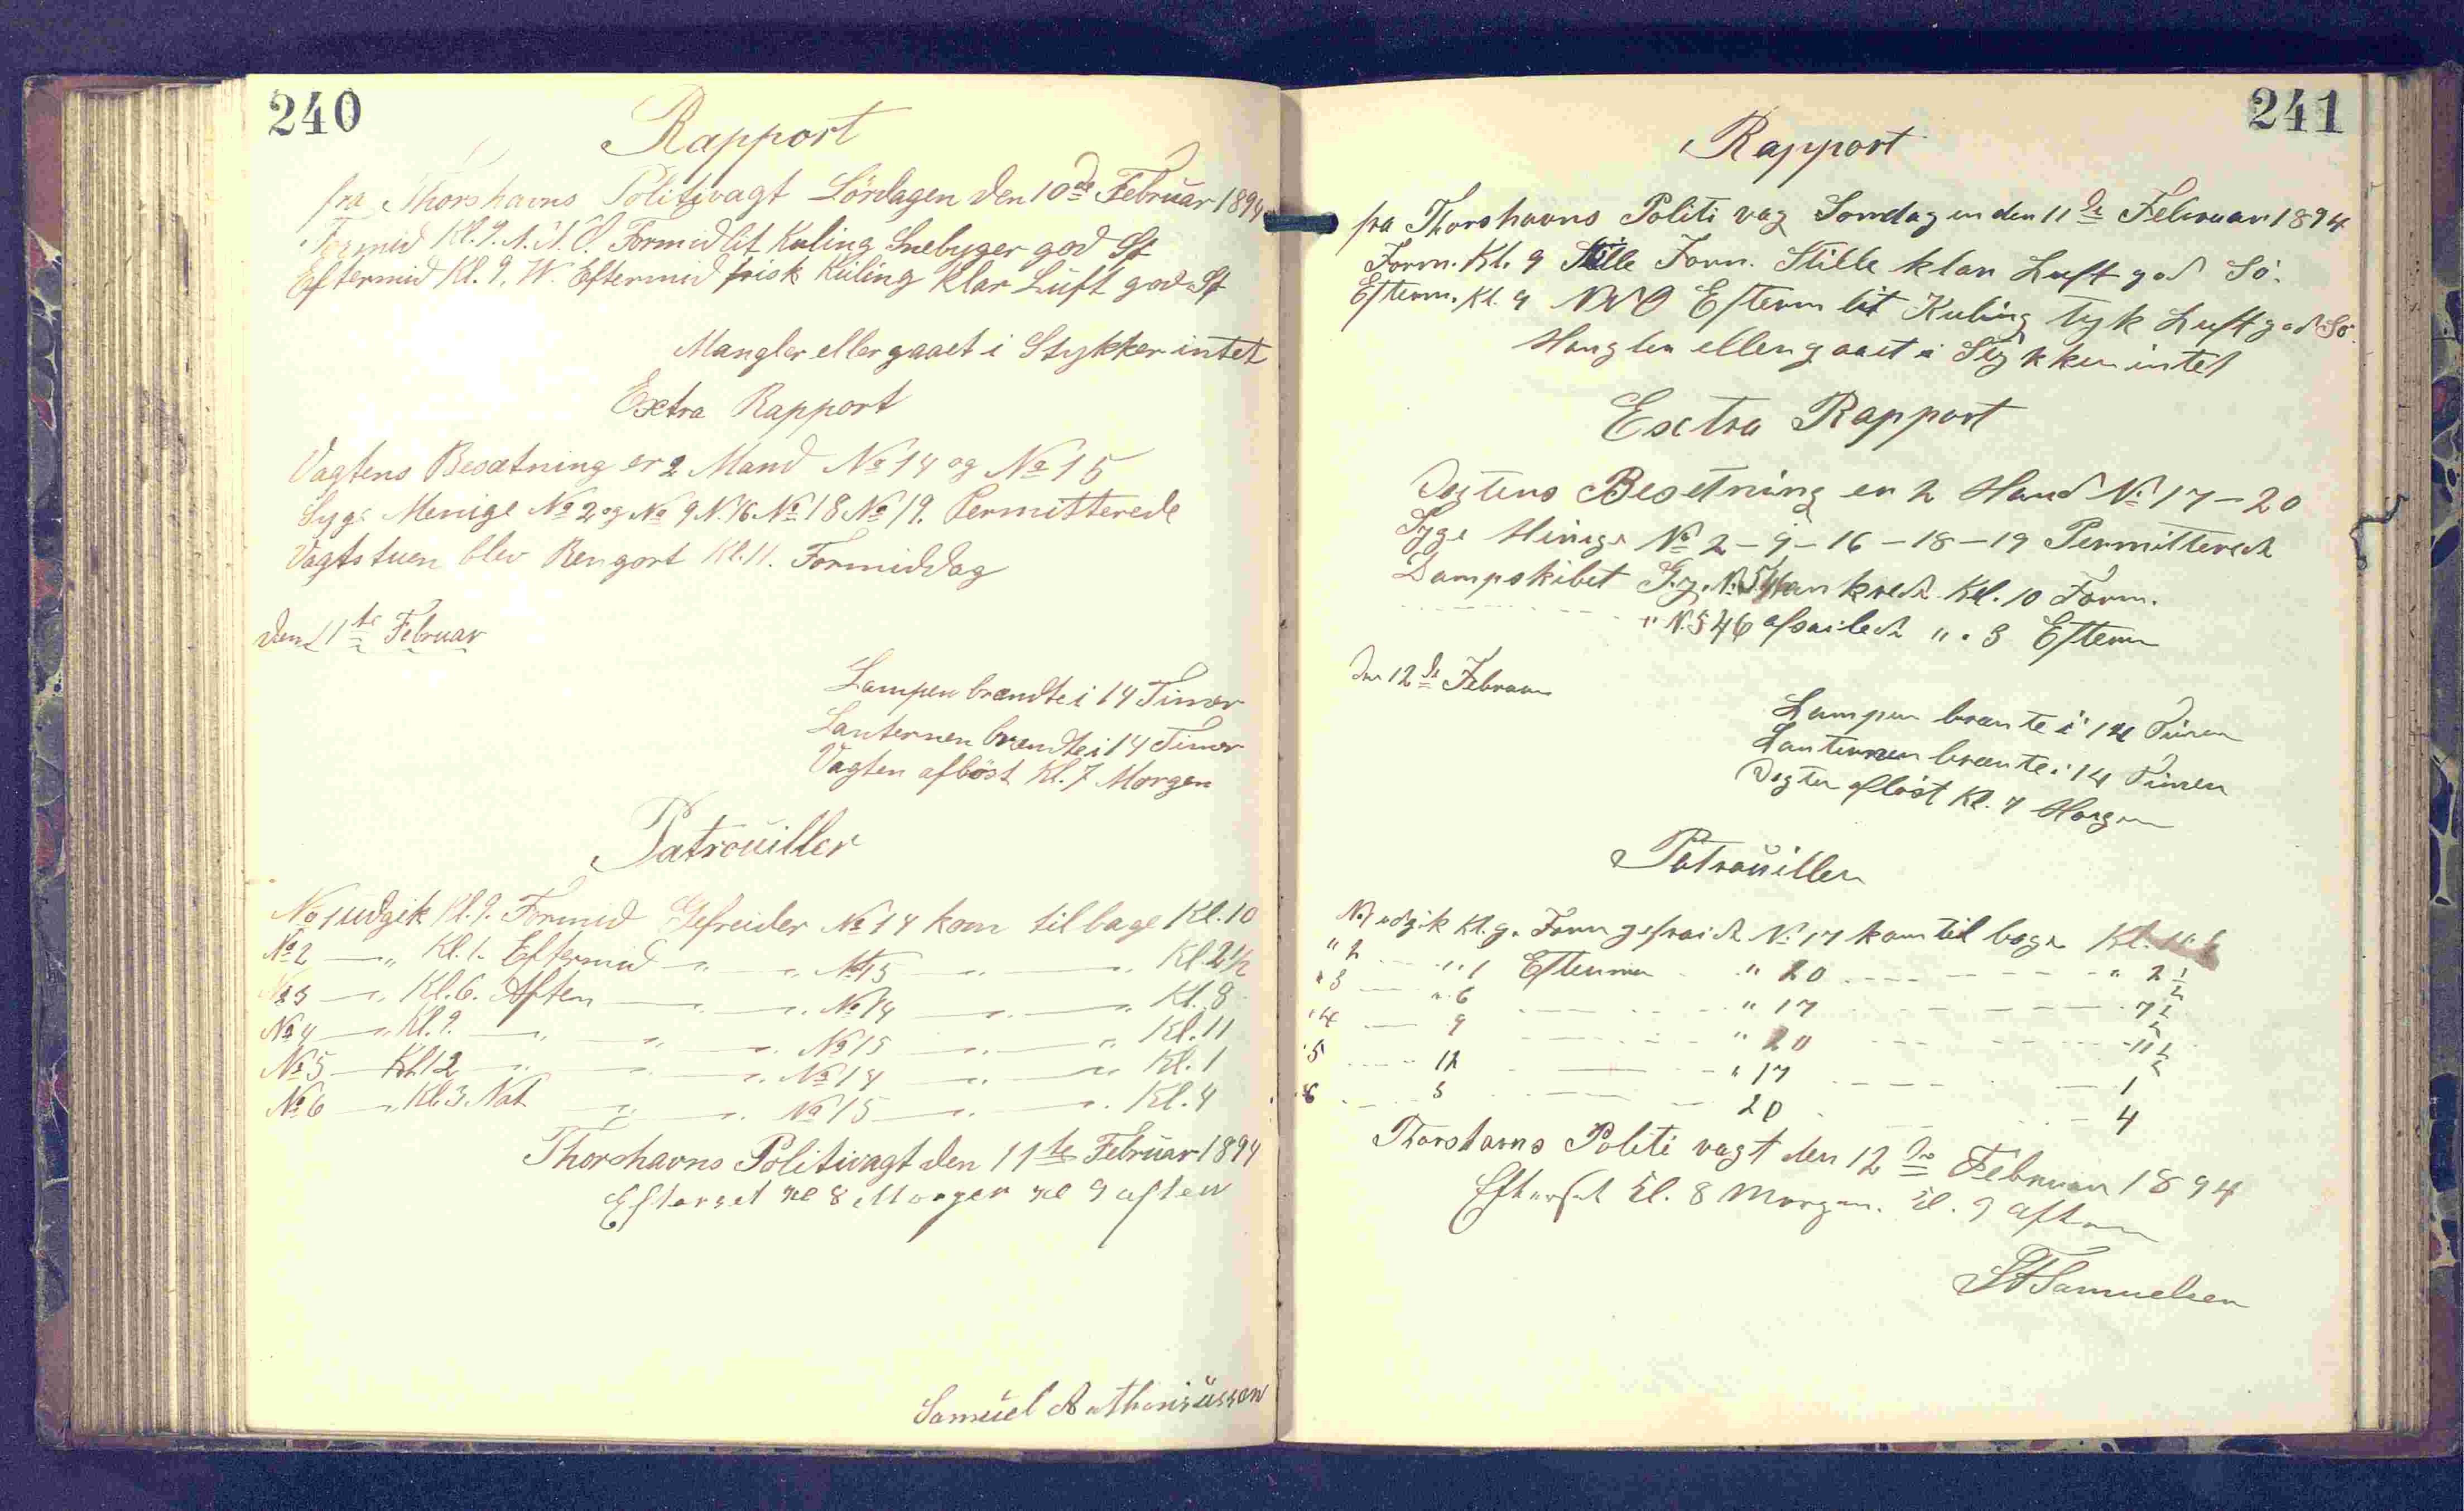 240
Rapport
fra Thorshavns Politivagt Lördagen den 10de Februar 1894
Formid Kl. 9. N.N.O. Formid lit Kuling Snebyger god Sö
Eftermid Kl. 9. W. Eftermid frisk Kuling Klar Luft god Sö
Mangler eller gaaet i Stykker intet
Extra Rapport
Vagtens Besætning er 2 Mand No 14 og No 15
Syge Menige No 2 og No 9 N. 16 No 18 No 19. Permitterede
Vagtstuen blev Rengort Kl. 11. Formiddag
den 11te Februar
Lampen brændte i 14 Timer
Lanternen brændte i 14 Timer
Vagten aflöst Kl. 7 Morgen
Patrouiller
No 1 udgik Kl. 9. Formid Gefreider No 14 kom tilbage Kl. 10
No 2 — „ Kl. 1. Eftermid — „ „ No 15 — „ — „ Kl. 2 1/2
No 3 — „ Kl. 6. Aften — „ „ No 14 — „ — „ Kl. 8
No 4 — „ Kl. 9. — „ „ — „ No 15 — „ — „ Kl. 11
No 5 — Kl 12 „ „ — „ No 14 — „ — „ Kl. 1
No 6 — „ Kl. 3. Nat — „ — „ No 15 — „ — „ Kl. 4
Thorshavns Politivagt den 11te Februar 1894
Efterset Kl 8 Morgen Kl 9 aften
Samuel
241
Rapport
fra Thorshavns Politi vag Sondagen den 11de Februar 1894
Form. Kl. 9 Stille Form. Stille klar Luft god Sö.
Efterm. Kl. 9 NNO Efterm lit Kuling tyk Luft god Sö.
Mangler eller gaaet i Stykker intet
Exctra Rapport
Vegtens Besetning er 2 Mand No 17 – 20
Syge Minige No 2 – 9 – 16 – 18 – 19 Permittered
Dampskibet ankrede Kl. 10 Form.
" N. 546 afsailede " . 3 Efterm
Den 12de Februar
Lampen brænte i 14 Timer
Lanternen brænte i 14 Timer
Vegten aflöst Kl. 7 Morgen
Patrouiller
No 1 udgik Kl. 9. Form gefraide N. 17 kom til bage Kl.
" 2 — " 1 Efterm " 20 — " 2 1/2
" 3 — " 6 — " 17 — 7 1/2
" 4 — 9 — " 20 — 11 1/2
" 5 — 12 — " 17 — 1
" 6 — 3 — 20 — 4
Thorshavns Politi vagt den 12de Februar 1894
Efterset Kl. 8 Morgen. Kl. 9 aften
Samuelsen